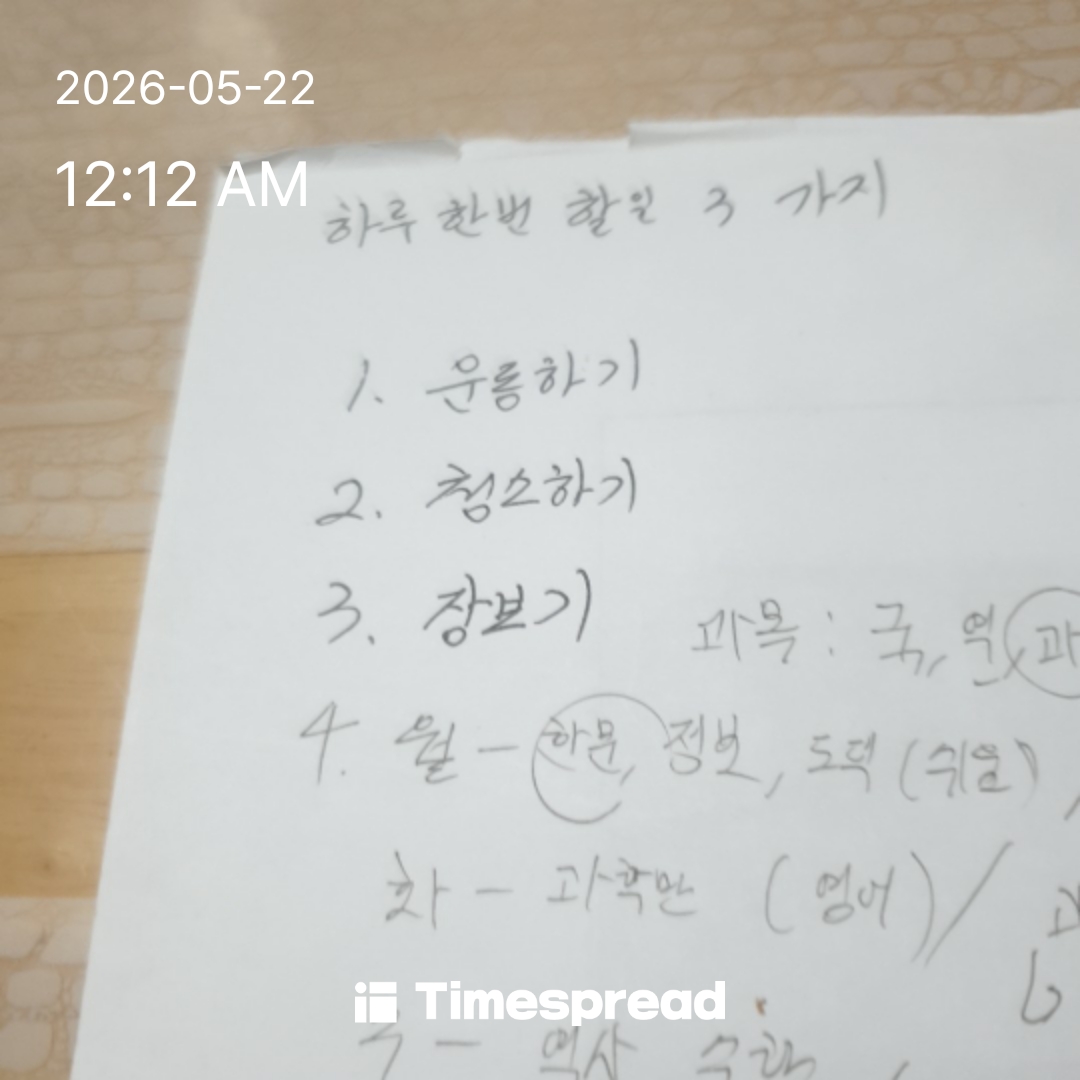 2026-05-22
12:12 AM
하루 한번 할일 3 가지
1. 운동하기
2. 청소하기
3. 장보기
과목 : 국, 역, 과
4. 월 - 한문, 정보, 도덕 (쉬움)
화 - 과학만 (영어) /
Timespread
역사 수학